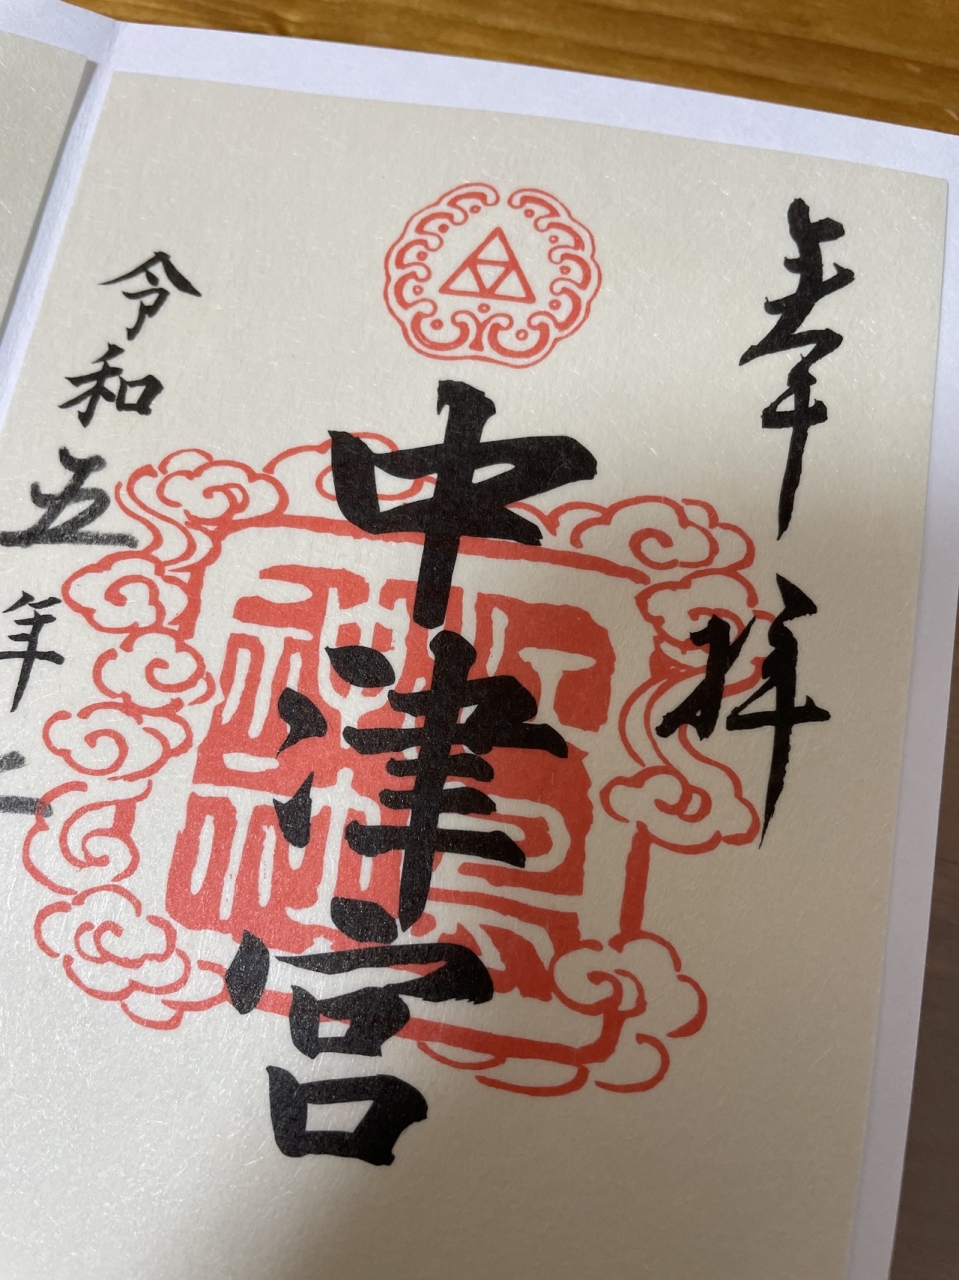 奉拝
中津宮
令和五年二